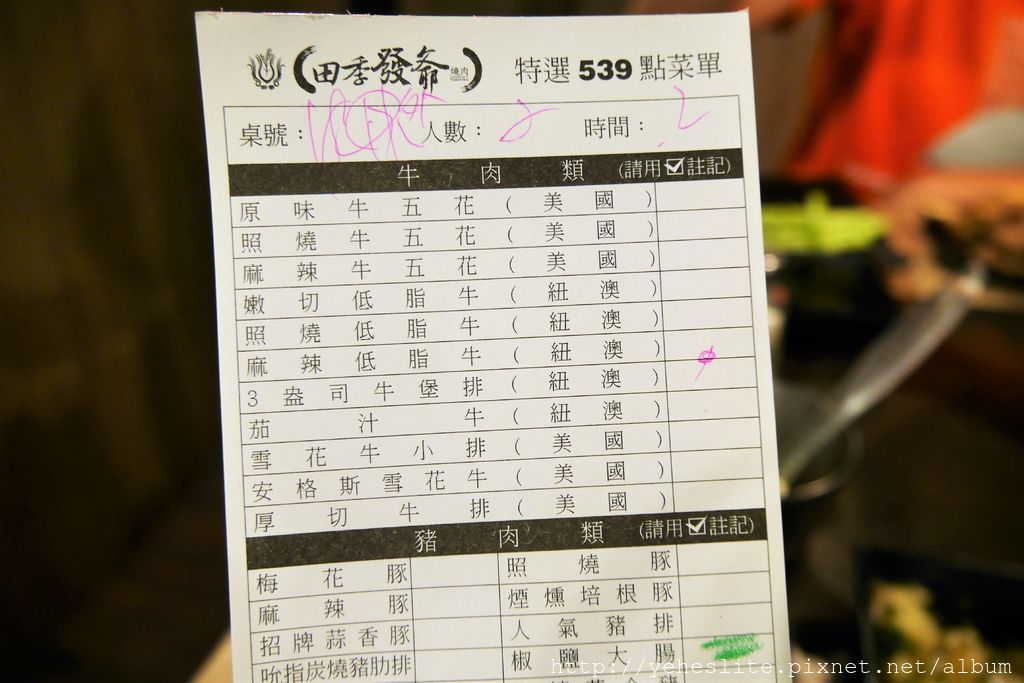 田季發爺 燒肉 特選 539 點菜單
桌號： 人數：2 時間：2
牛肉類 (請用☑註記)
原味牛五花(美國)
照燒牛五花(美國)
麻辣牛五花(美國)
嫩切低脂牛(紐澳)
照燒低脂牛(紐澳)
麻辣低脂牛(紐澳)
3盎司牛堡排(紐澳)
茄汁牛(紐澳)
雪花牛小排(美國)
安格斯雪花牛(美國)
厚切牛排(美國)
豬肉類 (請用☑註記)
梅花豚 照燒豚
麻辣豚 煙燻培根豚
招牌蒜香豚 人氣豬排
吮指炭燒豬肋排 椒鹽大腸
http://yeheslite.pixnet.net/album